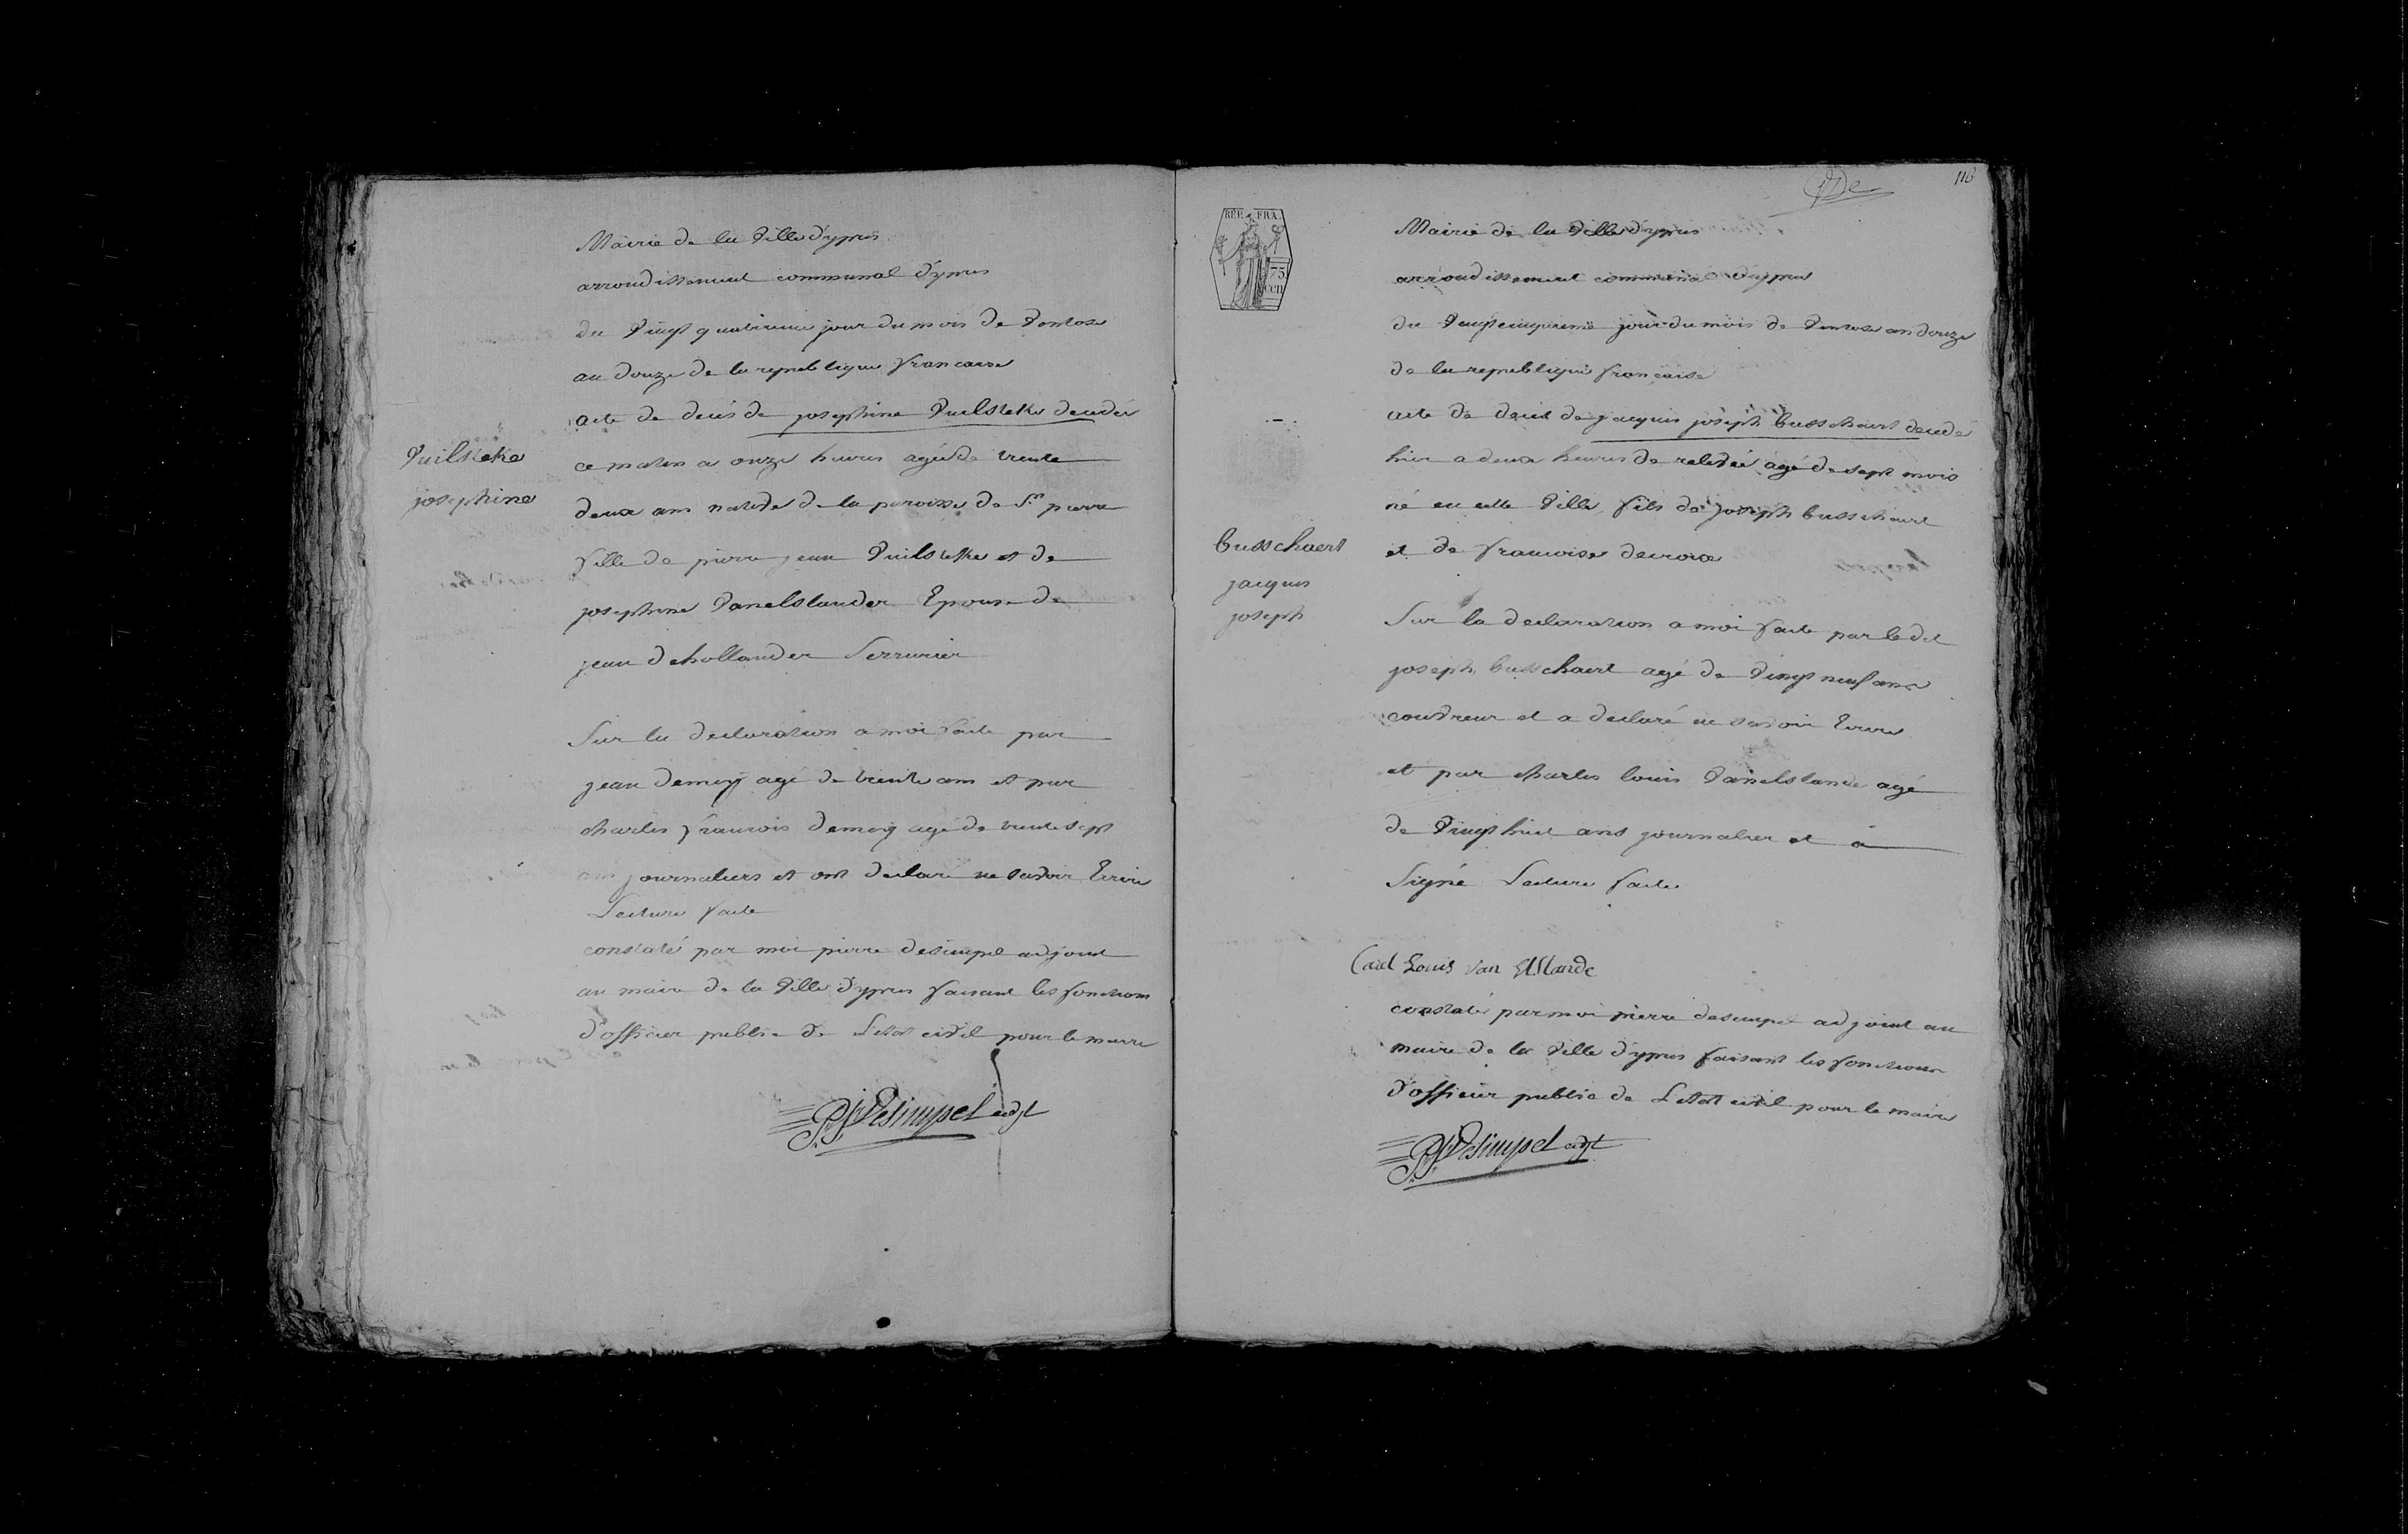 Mairie de la Ville d'ypres
arrondissement communal d'ypres
du Vingt quatrieme jour du mois de Ventose
an douze de la republique francaise
acte de decés de josephine Vuilsteke decedée
Vuilsteke
josephine
ce matin a onze heures agée de trente
deux ans native de la paroisse de St pierre
fille de pierre jean Vuilsteke et de
josephine Vanelslander Epouse de
jean dehollander Serrurier
Sur la declaration a moi faite par
jean demeÿ agé de trente ans et par
charles francois demeÿ agé de trente sept
ans journaliers et ont declaré ne savoir Ecrire
Lecture faite
constaté par moi pierre desimpel adjoint
au maire de la Ville d'ypres faisant les fonctions
d'officier public de L'etat civil pour le maire
PJDesimpel adjt
116
REP. FRA.
75
cen
Mairie de la Ville d'ypres
arrondissement communal d'ypres
du Vingt cinquieme jour du mois de Ventose an douze
de la republique française
acte de decés de jacques joseph busschaert decedé
hier a deux heures de relevée agé de sept mois
né en cette Ville fils de joseph busschaert
et de francoise decroix
busschaert
jacques
joseph
Sur la declaration a moi faite par le dit
joseph busschaert agé de Vingt neuf ans
coudreur et a declaré ne savoir Ecrire
et par charles louis Vanelslande agé
de Vingt huit ans journalier et a
Signé Lecture faite
Carel Louis Van Elslande
constaté par moi pierre desimpel adjoint au
maire de la Ville d'ypres faisant les fonctions
d'officier public de L'etat civil pour le maire
PJDesimpel adjt